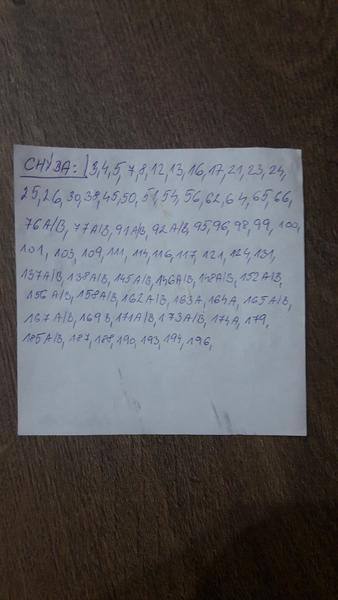 CHYBA: 3,4,5,7,8,12,13,16,17,21,23,24,
25,26,30,38,45,50,51,54,56,62,64,65,66,
76A/B, 77A/B, 91A/B, 92A/B, 95,96,98,99, 100,
101, 103, 109, 111, 114, 116, 117, 121, 124, 131,
137A/B, 138A/B, 145A/B, 146A/B, 148A/B, 152A/B,
156A/B, 158A/B, 162A/B, 163A, 164A, 165A/B,
167A/B, 169B, 171A/B, 173A/B, 174A, 179,
185A/B, 187, 188, 190, 193, 194, 196,